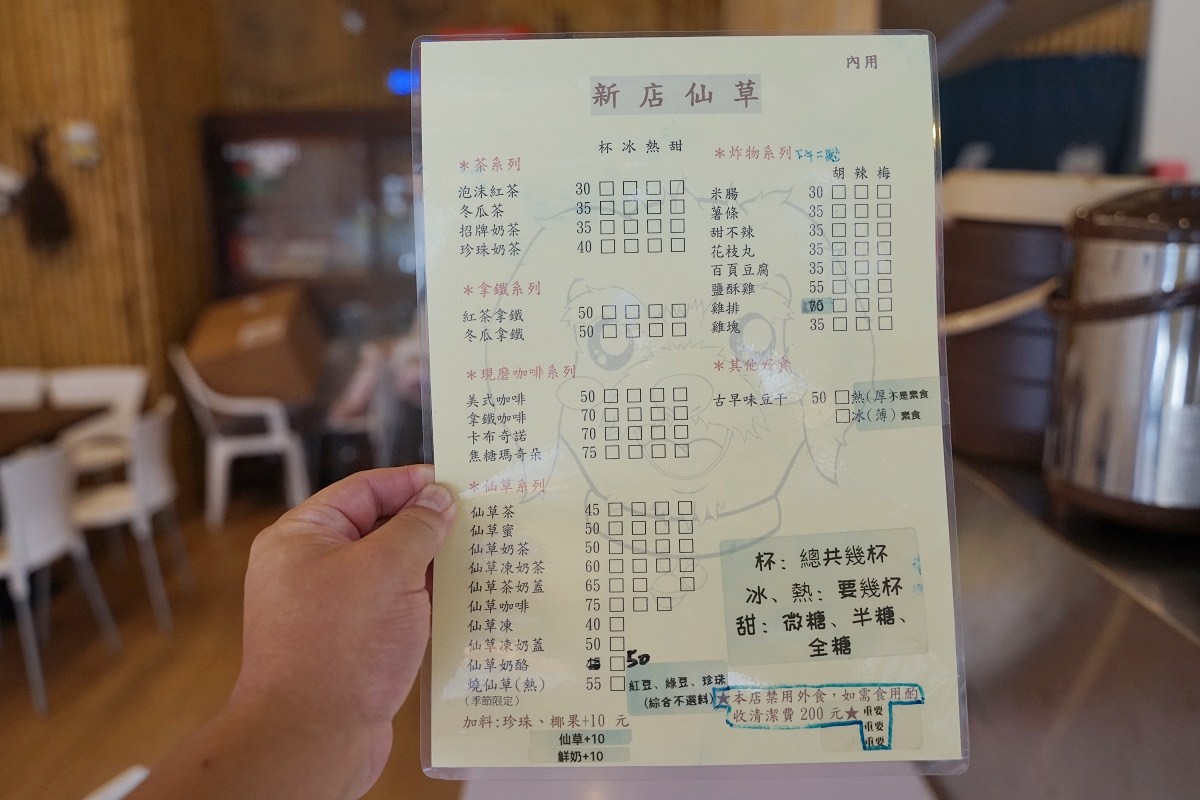 內用
新店仙草
杯 冰 熱 甜
＊茶系列
泡沫紅茶 30 □ □ □ □
冬瓜茶 35 □ □ □ □
招牌奶茶 35 □ □ □ □
珍珠奶茶 40 □ □ □ □
＊拿鐵系列
紅茶拿鐵 50 □ □ □ □
冬瓜拿鐵 50 □ □ □ □
＊現磨咖啡系列
美式咖啡 50 □ □ □ □
拿鐵咖啡 70 □ □ □ □
卡布奇諾 70 □ □ □ □
焦糖瑪奇朵 75 □ □ □ □
＊仙草系列
仙草茶 45 □ □ □ □
仙草蜜 50 □ □ □ □
仙草奶茶 50 □ □ □ □
仙草凍奶茶 60 □ □ □ □
仙草茶奶蓋 65 □ □ □
仙草咖啡 75 □ □ □
仙草凍 40 □
仙草凍奶蓋 50 □
仙草奶酪 45 □ 50
燒仙草(熱) 55 □ 紅豆、綠豆、珍珠
(季節限定) (綜合不選料)
加料:珍珠、椰果+10 元
仙草+10
鮮奶+10
＊炸物系列
胡 辣 梅
米腸 30 □ □ □
薯條 35 □ □ □
甜不辣 35 □ □ □
花枝丸 35 □ □ □
百頁豆腐 35 □ □ □
鹽酥雞 55 □ □ □
雞排 □ □ □
雞塊 35 □ □ □
＊其他好食
古早味豆干 50 □熱(厚)不是素食
□冰(薄) 素食
杯：總共幾杯
冰、熱：要幾杯
甜：微糖、半糖、
全糖
★本店禁用外食，如需食用酌
收清潔費 200 元★重要
重要
重要